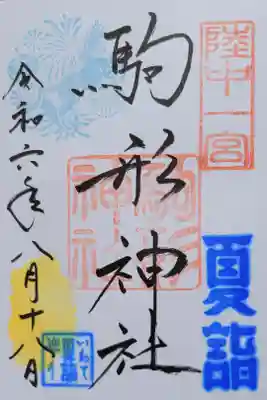 陸中一宮
夏詣
駒形神社
駒形
神社
令和六年八月十八日
いわて
夏詣
巡り